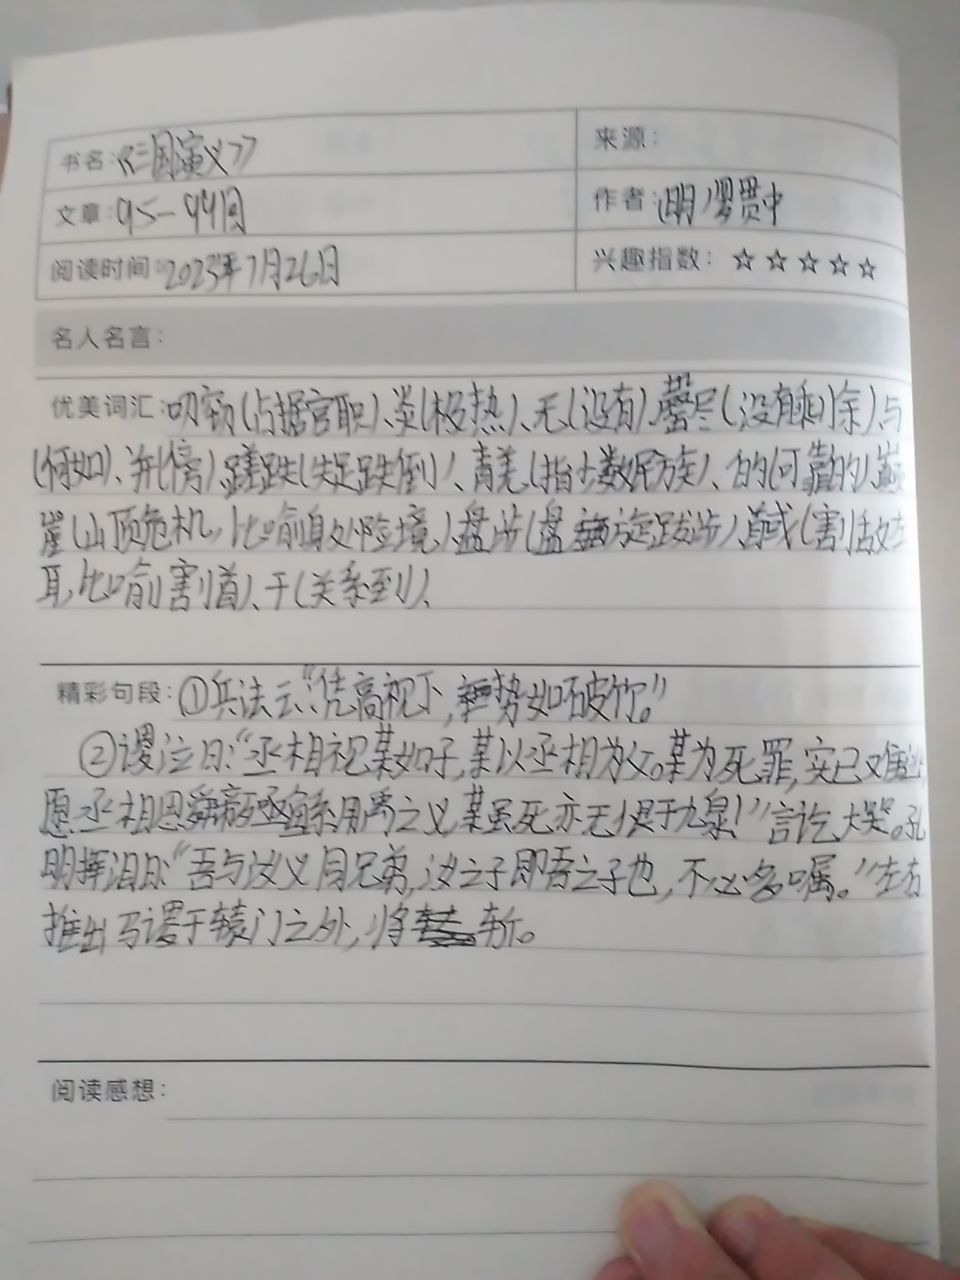 书名:《三国演义》
来源:
文章:95-99回
作者:(明)罗贯中
阅读时间:2023年7月26日
兴趣指数:☆☆☆☆☆
名人名言:
优美词汇:叨窃(占据官职)、炎(极热)、无(没有)、罄尽(没有剩余)、与
(何如)、并(傍)、蹉跌(失足跌倒)、青羌(指少数民族)、的(可靠的)、巅
崖(山顶危机,比喻身处险境)、盘涉(盘旋跋涉)、馘(割敌左
耳,比喻割首)、干(关系到)、
精彩句段:①兵法云:“凭高视下,势如破竹。”
②谡泣曰:“丞相视某如子,某以丞相为父。某为死罪,实已难逃
愿丞相思舜帝殛鲧用禹之义某虽死亦无恨于九泉!”言讫大哭。孔
明挥泪曰:“吾与汝义同兄弟,汝之子即吾之子也,不必多嘱。”左右
推出马谡于辕门之外,将斩。
阅读感想: